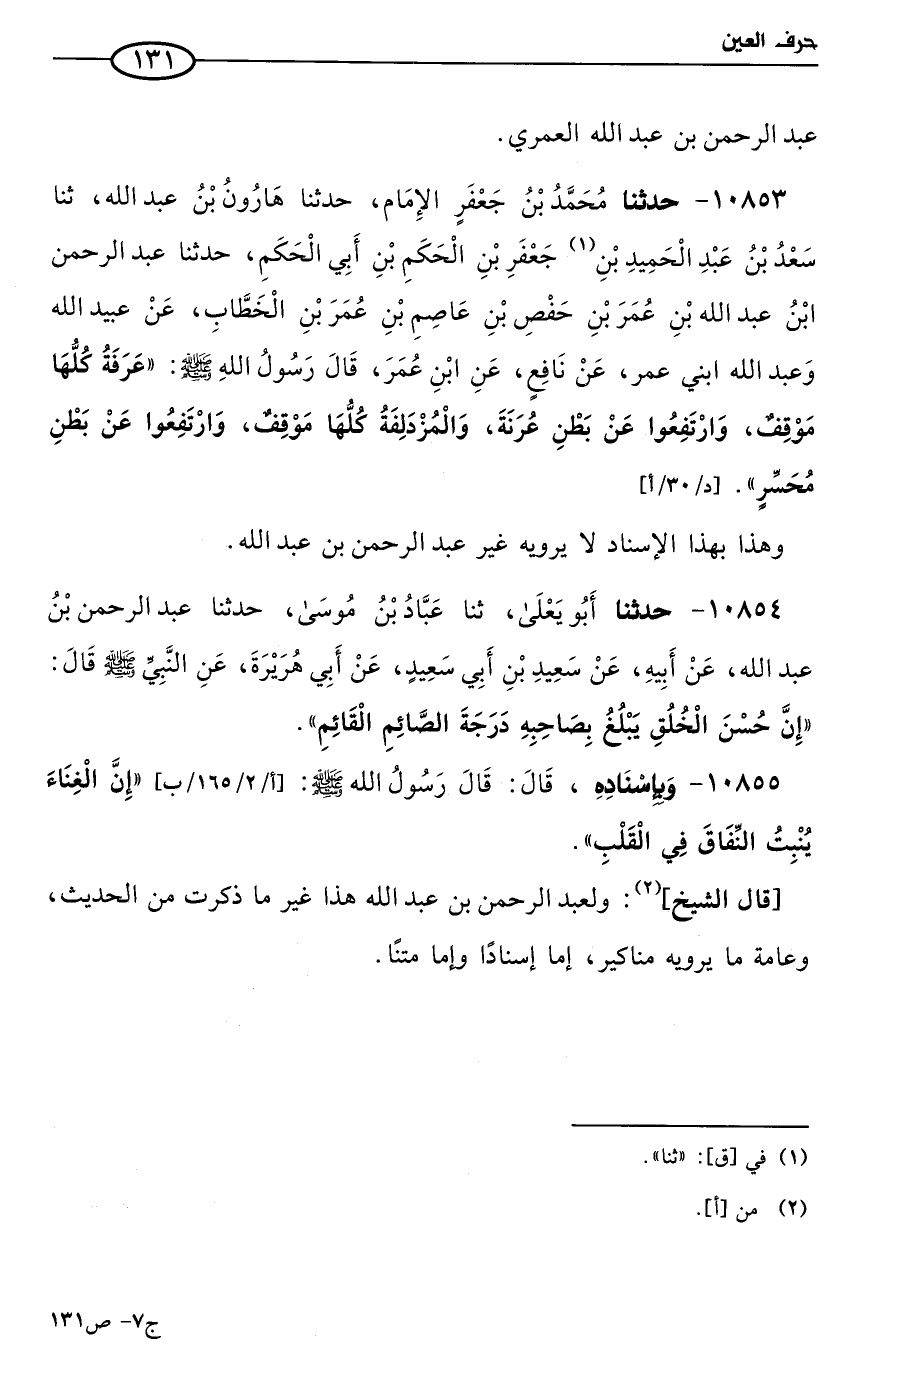 حرف العين
١٣١
عبد الرحمن بن عبد الله العمري.
١٠٨٥٣- حدثنا مُحَمَّدُ بْنُ جَعْفَرٍ الإِمَام، حدثنا هَارُونُ بْنُ عبد الله، ثنا
سَعْدُ بْنُ عَبْدِ الْحَمِيدِ بْنِ(١) جَعْفَرِ بْنِ الْحَكَمِ بْنِ أَبِي الْحَكَمِ، حدثنا عبد الرحمن
ابْنُ عبد الله بْنِ عُمَرَ بْنِ حَفْصِ بْنِ عَاصِمِ بْنِ عُمَرَ بْنِ الْخَطَّابِ، عَنْ عبيد الله
وَعبد الله ابني عمر، عَنْ نَافِعٍ، عَنِ ابْنِ عُمَرَ، قَالَ رَسُولُ اللهِ ﷺ: «عَرَفَةُ كُلُّهَا
مَوْقِفٌ، وَارْتَفِعُوا عَنْ بَطْنِ عُرَنَةَ، وَالْمُزْدَلِفَةُ كُلُّهَا مَوْقِفٌ، وَارْتَفِعُوا عَنْ بَطْنِ
مُحَسِّرٍ». [د/٣٠/أ]
وهذا بهذا الإسناد لا يرويه غير عبد الرحمن بن عبد الله.
١٠٨٥٤- حدثنا أَبُو يَعْلَىٰ، ثنا عَبَّادُ بْنُ مُوسَىٰ، حدثنا عبد الرحمن بْنُ
عبد الله، عَنْ أَبِيهِ، عَنْ سَعِيدِ بْنِ أَبِي سَعِيدٍ، عَنْ أَبِي هُرَيْرَةَ، عَنِ النَّبِيِّ ﷺ قَالَ:
«إِنَّ حُسْنَ الْخُلُقِ يَبْلُغُ بِصَاحِبِهِ دَرَجَةَ الصَّائِمِ الْقَائِمِ».
١٠٨٥٥- وَبِإِسْنَادِهِ ، قَالَ: قَالَ رَسُولُ الله ﷺ: [أ/١٦٥/٢/ب] «إِنَّ الْغِنَاءَ
يُنْبِتُ النِّفَاقَ فِي الْقَلْبِ».
[قال الشيخ](٢): ولعبد الرحمن بن عبد الله هذا غير ما ذكرت من الحديث،
وعامة ما يرويه مناكير، إما إسنادًا وإما متنًا.
(١) في [ق]: «ثنا».
(٢) من [أ].
ج٧- ص١٣١